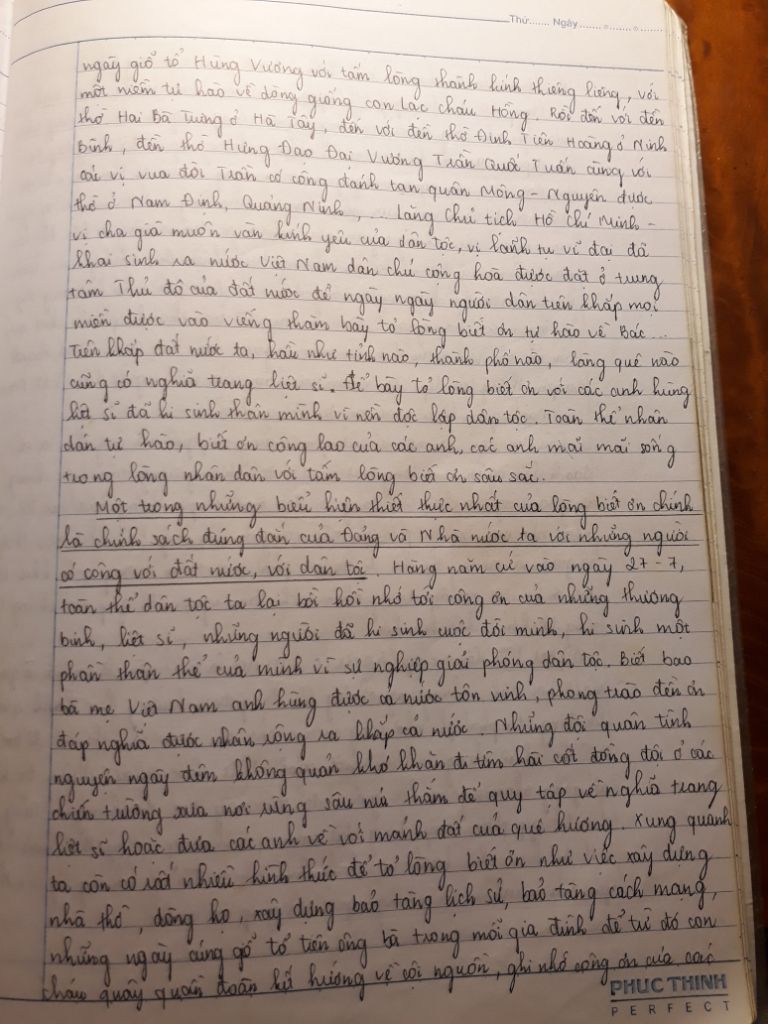 Thứ....... Ngày.......
ngày giỗ tổ Hùng Vương với tấm lòng thành kính thiêng liêng, với
một niềm tự hào về dòng giống con Lạc cháu Hồng. Rồi đến với đền
thờ Hai Bà Trưng ở Hà Tây, đến với đền thờ Đinh Tiên Hoàng ở Ninh
Bình, đền thờ Hưng Đạo Đại Vương Trần Quốc Tuấn cùng với
các vị vua đời Trần có công đánh tan quân Mông - Nguyên được
thờ ở Nam Định, Quảng Ninh, ... Lăng Chủ tịch Hồ Chí Minh -
vị cha già muôn vàn kính yêu của dân tộc, vị lãnh tụ vĩ đại đã
khai sinh ra nước Việt Nam dân chủ cộng hoà được đặt ở trung
tâm Thủ đô của đất nước để ngày ngày người dân trên khắp mọi
miền được vào viếng thăm bày tỏ lòng biết ơn tự hào về Bác...
Trên khắp đất nước ta, hầu như tỉnh nào, thành phố nào, làng quê nào
cũng có nghĩa trang liệt sĩ. Để bày tỏ lòng biết ơn với các anh hùng
liệt sĩ đã hi sinh thân mình vì nền độc lập dân tộc. Toàn thể nhân
dân tự hào, biết ơn công lao của các anh, các anh mãi mãi sống
trong lòng nhân dân với tấm lòng biết ơn sâu sắc.
Một trong những biểu hiện thiết thực nhất của lòng biết ơn chính
là chính sách đúng đắn của Đảng và Nhà nước ta với những người
có công với đất nước, với dân tộc. Hàng năm cứ vào ngày 27 - 7,
toàn thể dân tộc ta lại bồi hồi nhớ tới công ơn của những thương
binh, liệt sĩ, những người đã hi sinh cuộc đời mình, hi sinh một
phần thân thể của mình vì sự nghiệp giải phóng dân tộc. Biết bao
bà mẹ Việt Nam anh hùng được cả nước tôn vinh, phong trào đền ơn
đáp nghĩa được nhân rộng ra khắp cả nước. Những đội quân tình
nguyện ngày đêm không quản khó khăn đi tìm hài cốt đồng đội ở các
chiến trường xưa nơi rừng sâu núi thẳm để quy tập về nghĩa trang
liệt sĩ hoặc đưa các anh về với mảnh đất của quê hương. Xung quanh
ta còn có rất nhiều hình thức để tỏ lòng biết ơn như việc xây dựng
nhà thờ, dòng họ, xây dựng bảo tàng lịch sử, bảo tàng cách mạng,
những ngày cúng giỗ tổ tiên ông bà trong mỗi gia đình để từ đó con
cháu quây quần đoàn kết hướng về cội nguồn, ghi nhớ công ơn của các
PHUC THINH
PERFECT